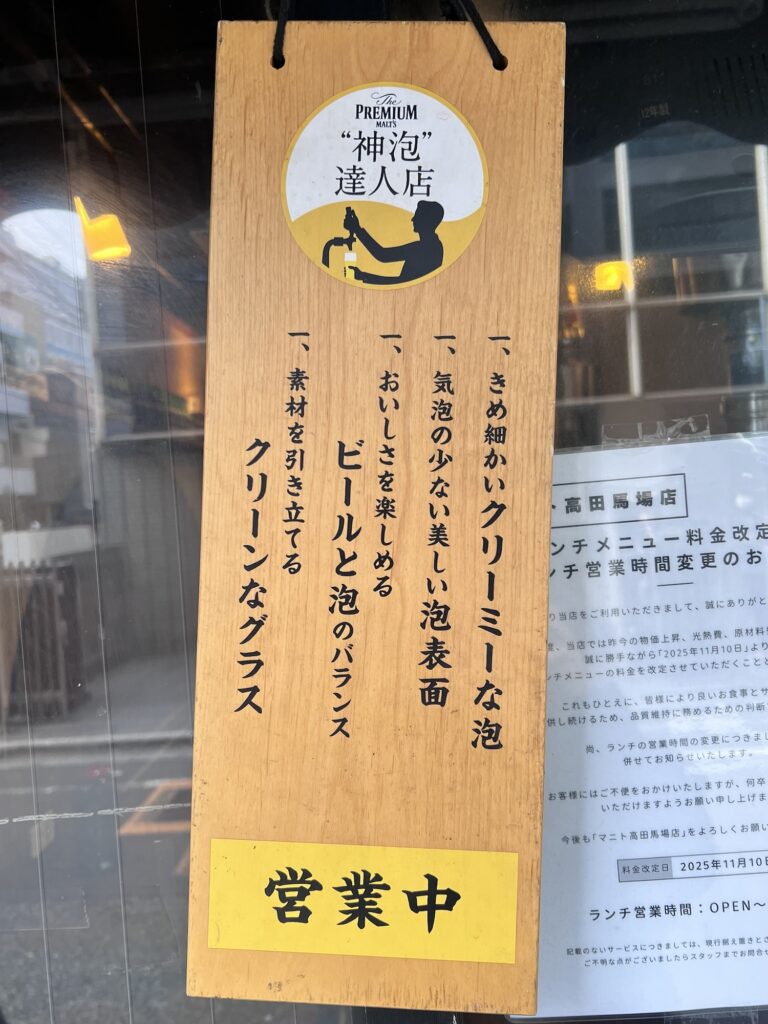 The
PREMIUM
MALT'S
“神泡”
達人店
一、きめ細かいクリーミーな泡
一、気泡の少ない美しい泡表面
一、おいしさを楽しめる
ビールと泡のバランス
一、素材を引き立てる
クリーンなグラス
営業中
ト高田馬場店
ンチメニュー料金改定
ンチ営業時間変更のお
り当店をご利用いただきまして、誠にありがと
、当店では昨今の物価上昇、光熱費、原材料
誠に勝手ながら「2025年11月10日」より
ンチメニューの料金を改定させていただくことと
これもひとえに、皆様により良いお食事とサ
供し続けるため、品質維持に務めるための判断
尚、ランチの営業時間の変更につきまし
併せてお知らせいたします。
お客様にはご不便をおかけいたしますが、何卒
いただけますようお願い申し上げま
今後も「マニト高田馬場店」をよろしくお願い
料金改定日 2025年11月10日
ランチ営業時間：OPEN～
記載のないサービスにつきましては、現行据え置きとさ
ご不明な点がございましたらスタッフまでお問合せ